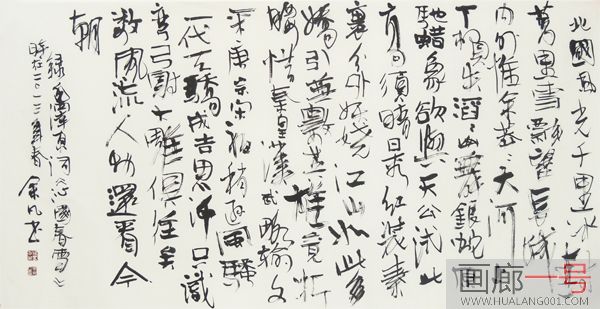 北國風光千里冰封
萬里雪飄望長城
内外惟余莽々大河上
下頓失滔々山舞銀蛇原
馳蜡象欲與天公試比
高須晴日看红装素
裹分外妖娆江山如此多
嬌引無數英雄竞折
腰惜秦皇漢武略输文
采唐宗宋祖稍逊風騷
一代天驕成吉思汗只識
彎弓射大雕俱往矣
数風流人物還看今
朝
錄毛澤東词沁園春雪
時在二〇一三年春
画廊一号
WWW.HUALANG001.COM